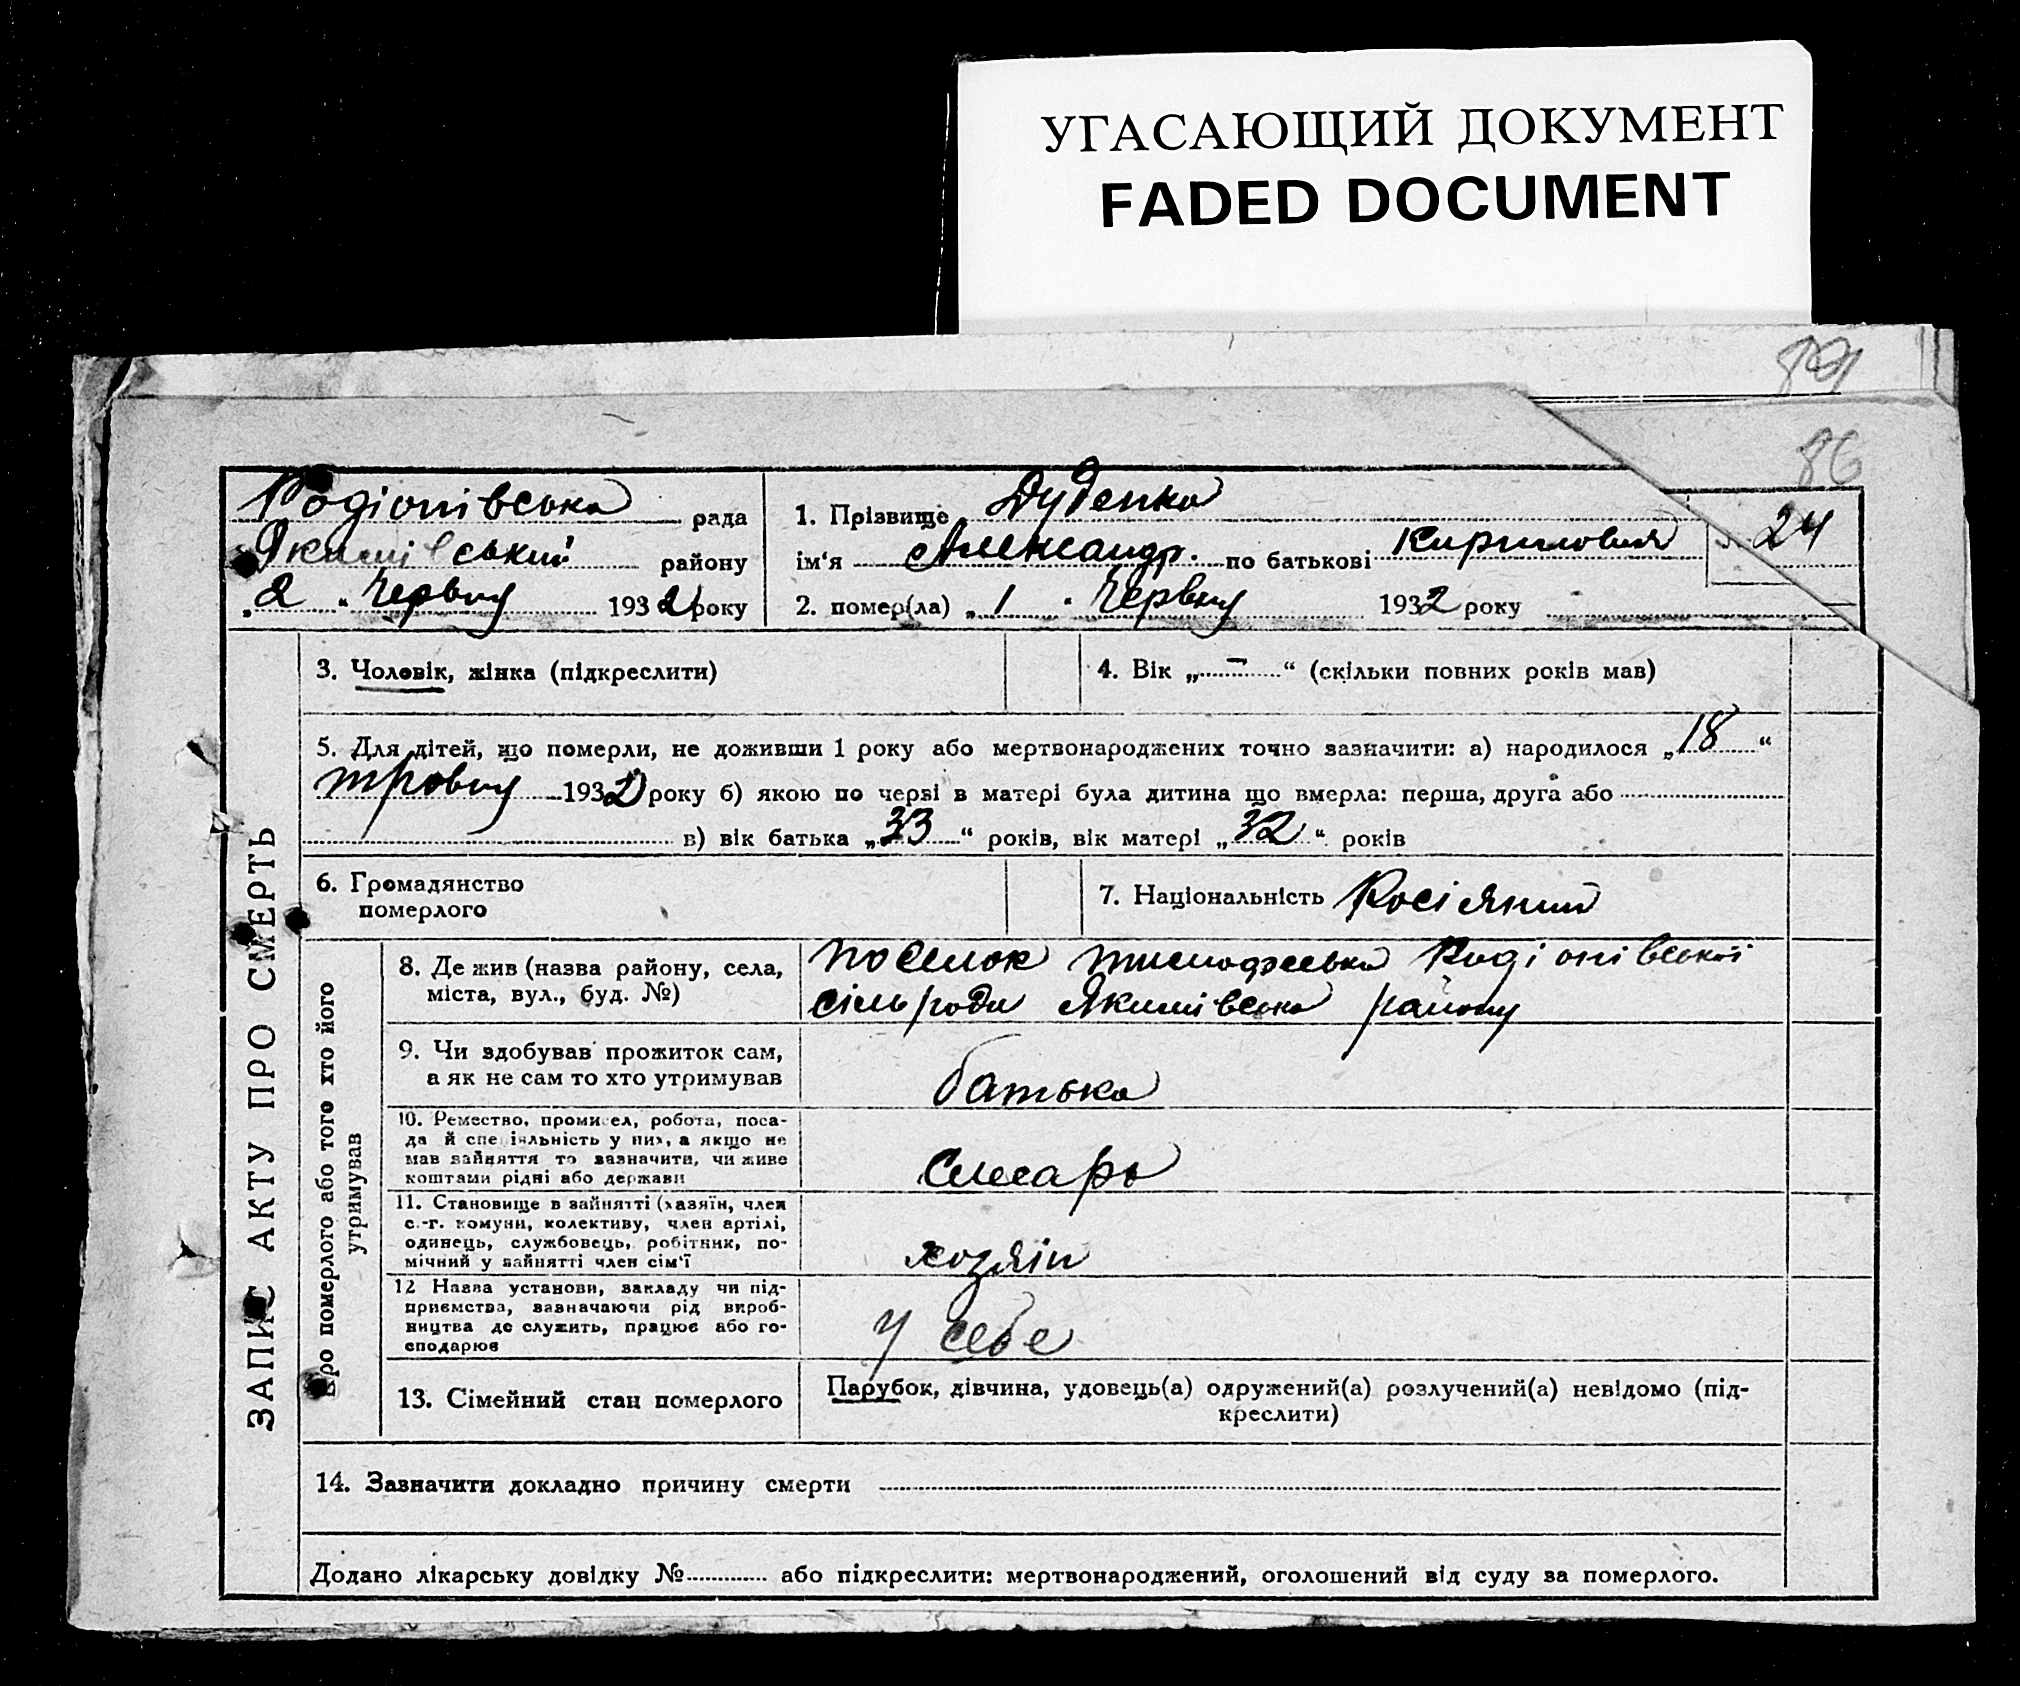 УГАСАЮЩИЙ ДОКУМЕНТ
FADED DOCUMENT
86
24
Родіонівська рада
Якимівський району
„ 2 “ Червня 1932 року
1. Прізвище Дуденко
ім‘я Александр. по батькові Кирилович
2. помер(ла) „ 1 “ Червня 1932 року
ЗАПИС АКТУ ПРО СМЕРТЬ
3. Чоловік, жінка (підкреслити)
4. Вік „ — “ (скільки повних років мав)
5. Для дітей, що померли, не доживши 1 року або мертвонароджених точно зазначити: а) народилося „ 18 “
травня 1932 року б) якою по черзі в матері була дитина що вмерла: перша, друга або
в) вік батька „ 33 “ років, вік матері „ 32 “ років
6. Громадянство
померлого
7. Національність Росіянин
Про померлого або того хто його
утримував
8. Де жив (назва району, села,
міста, вул., буд. №)
поселок Родіонівської
сільради Якимівсько району
9. Чи здобував прожиток сам,
а як не сам то хто утримував
батько
10. Ремество, промисел, робота, поса-
да й спеціяльність у них, а якщо не
мав зайняття то зазначити, чи живе
коштами рідні або держави
слесарь
11. Становище в зайнятті (хазяїн, член
с.-г. комуни, колективу, член артілі,
одинець, службовець, робітник, по-
мічний у зайнятті член сім‘ї
хозяін
12 Назва установи, закладу чи під-
приємства, зазначаючи рід вироб-
ництва де служить, працює або го-
сподарює
у себе
13. Сімейний стан померлого
Парубок, дівчина, удовець(а) одружений(а) розлучений(а) невідомо (під-
креслити)
14. Зазначити докладно причину смерти
Додано лікарську довідку № або підкреслити: мертвонароджений, оголошений від суду за померлого.